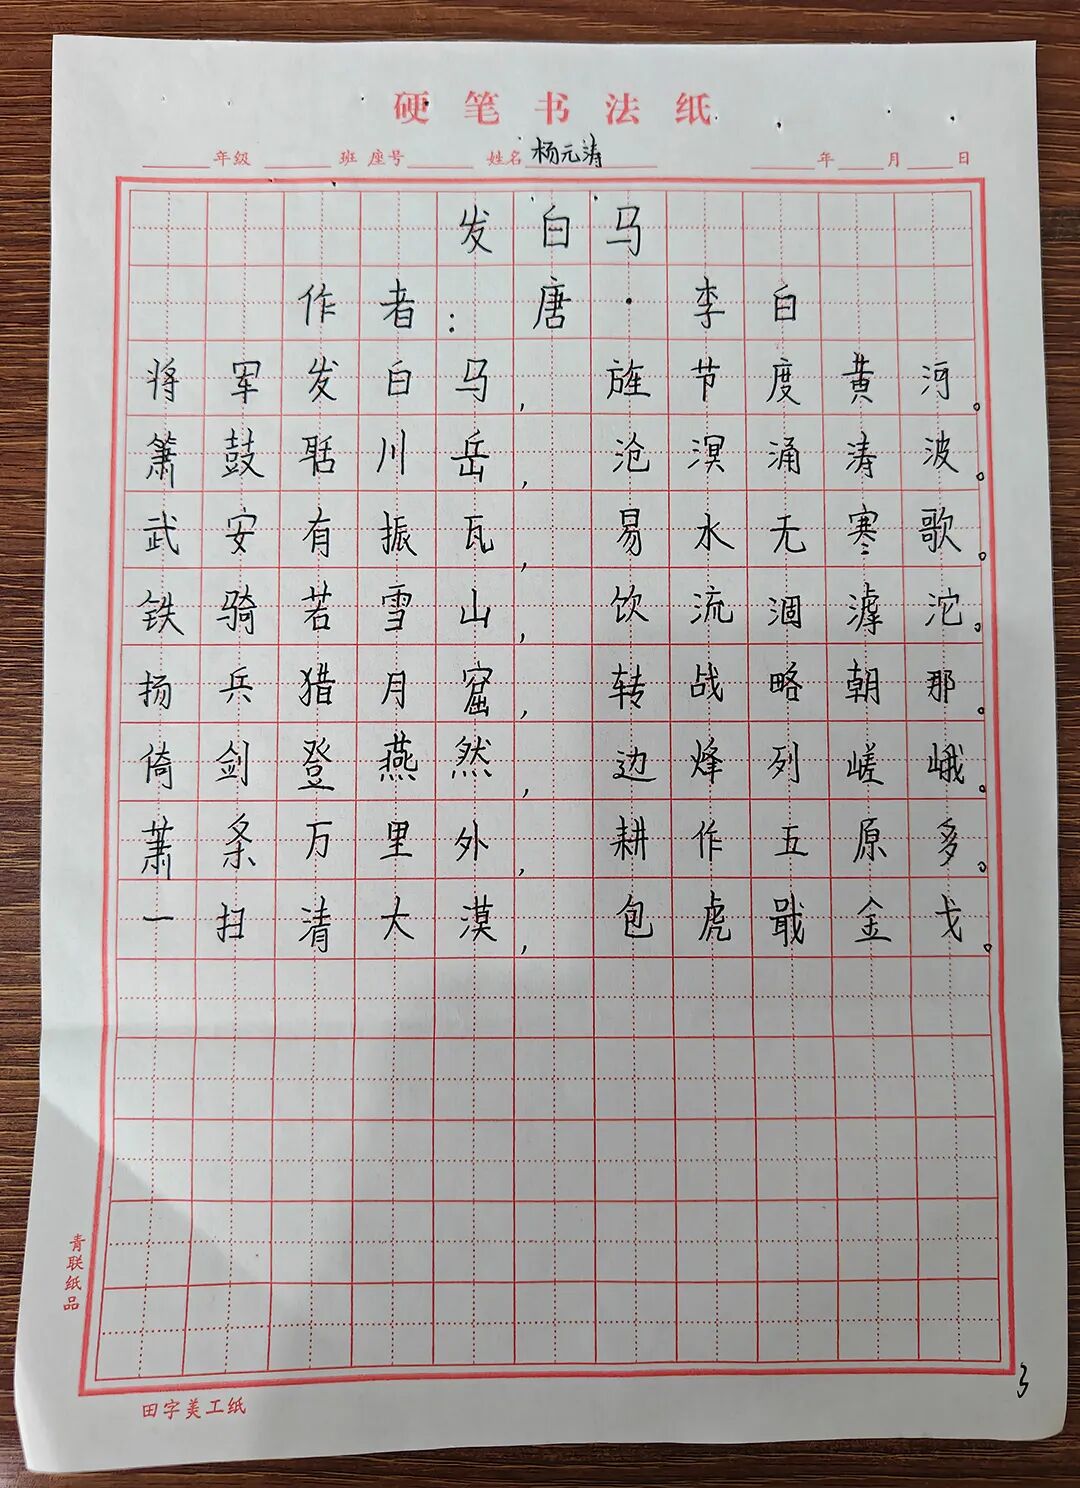 硬笔书法纸
年级 班 座号 姓名 杨元涛 年 月 日
发白马
作者：唐·李白
将军发白马，旌节度黄河。
箫鼓聒川岳，沧溟涌涛波。
武安有振瓦，易水无寒歌。
铁骑若雪山，饮流涸滹沱。
扬兵猎月窟，转战略朝那。
倚剑登燕然，边烽列嵯峨。
萧条万里外，耕作五原多。
一扫清大漠，包虎戢金戈。
青联纸品
田字美工纸
3